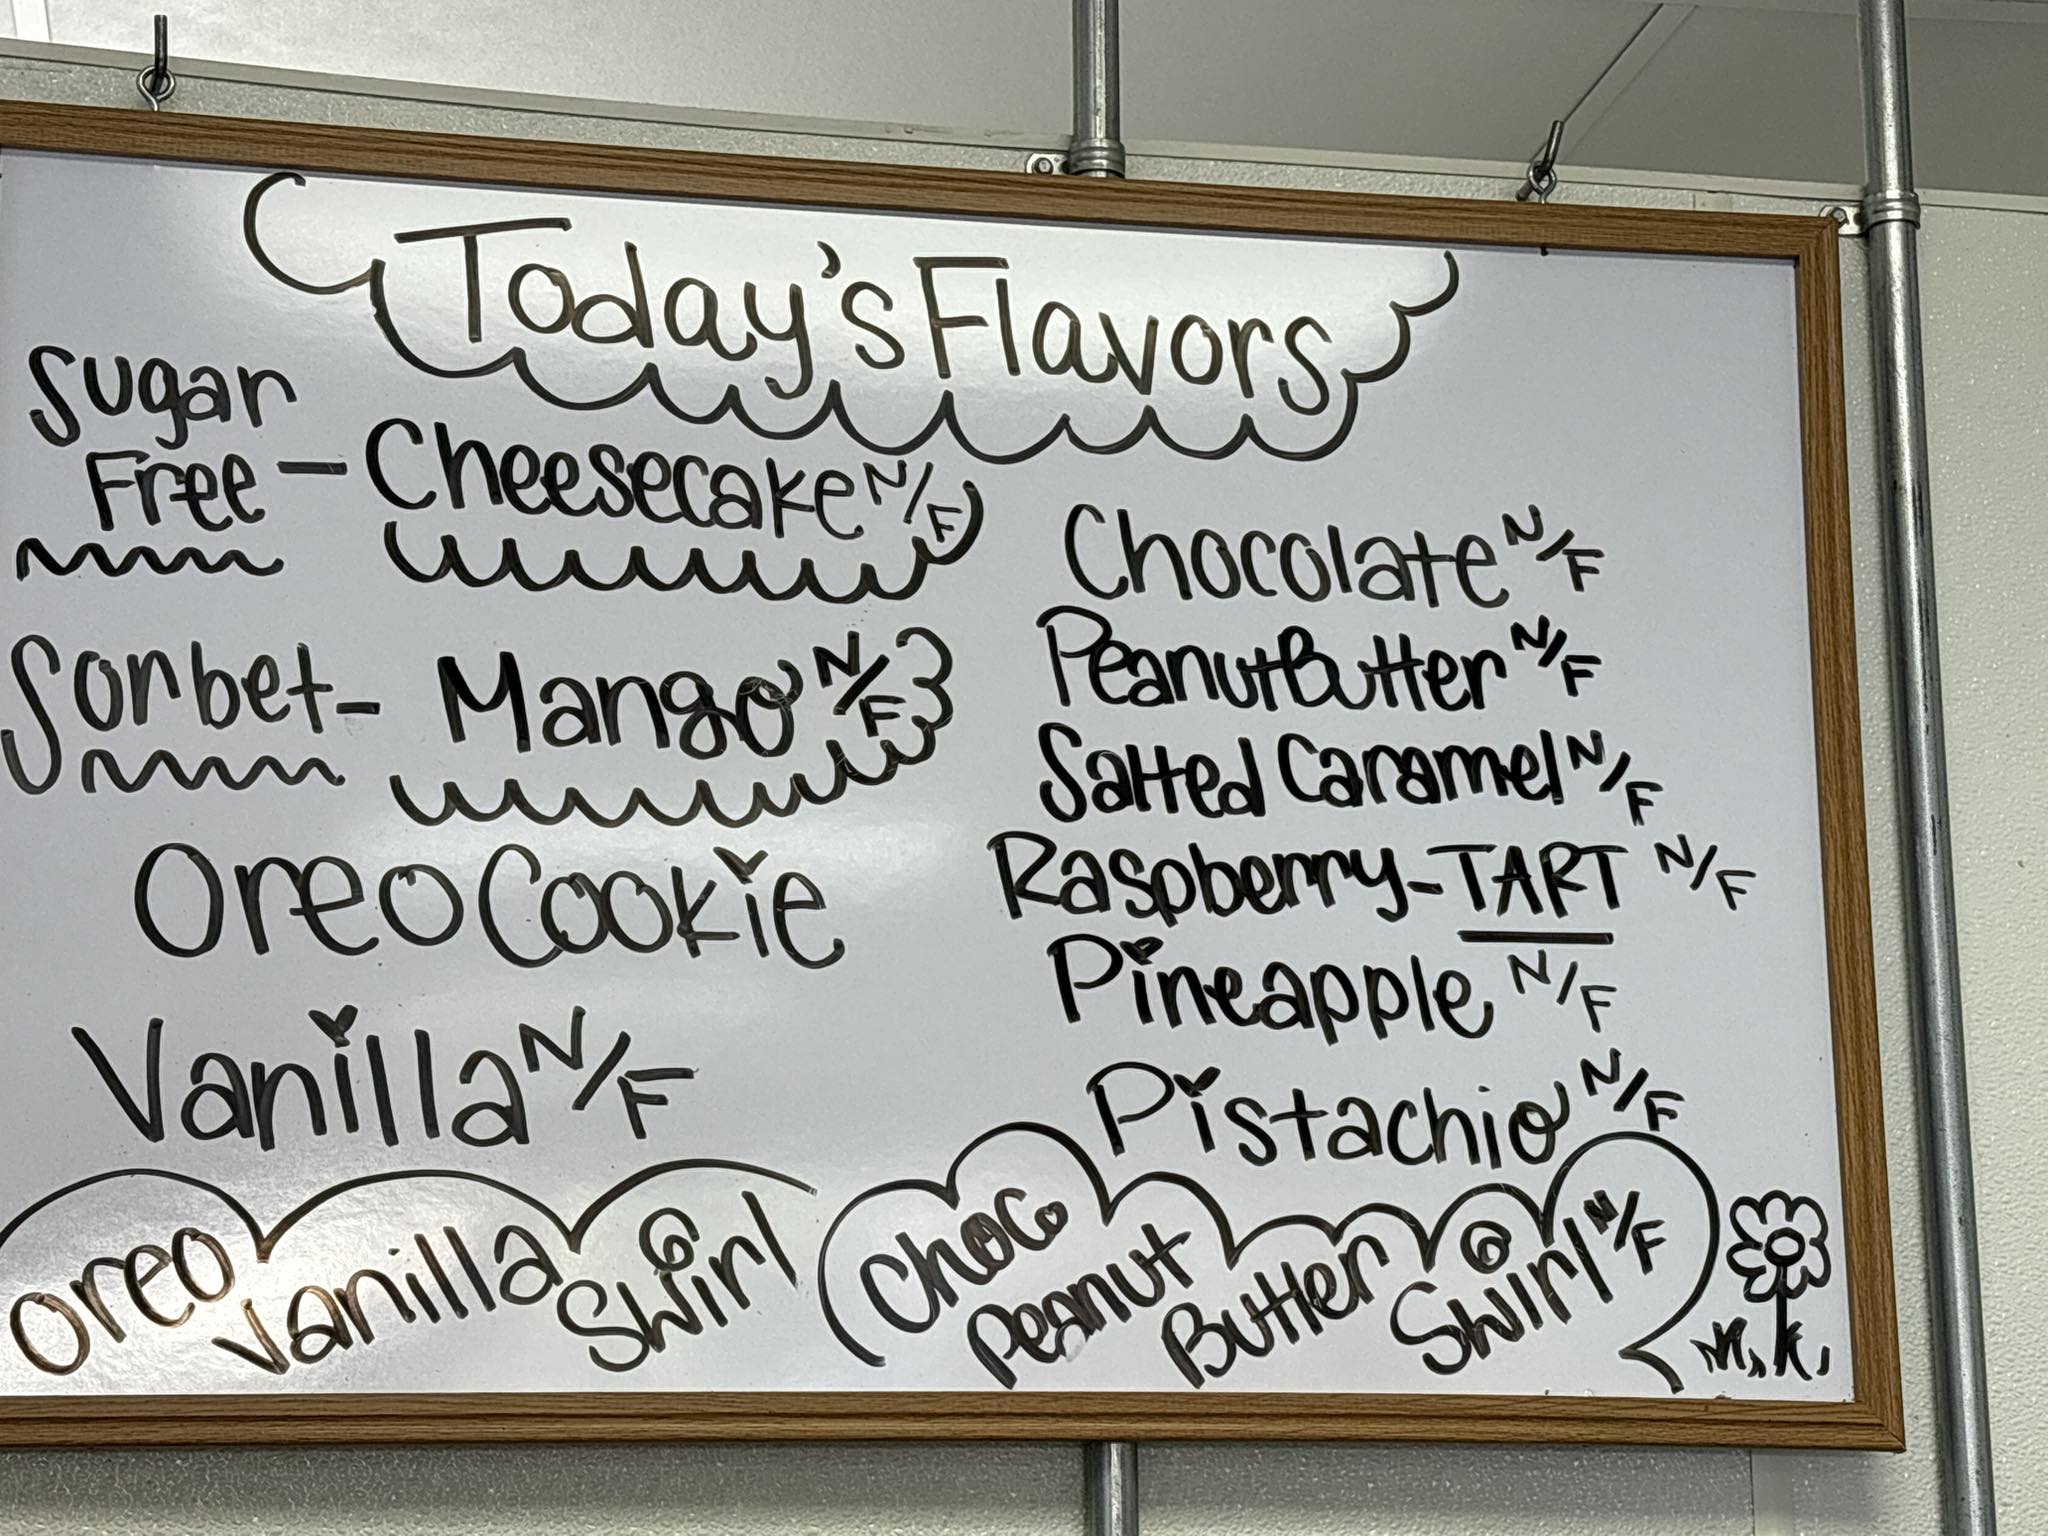 Today's Flavors
Sugar
Free - Cheesecake N/F
Sorbet - Mango N/F
Oreo Cookie
Vanilla N/F
Chocolate N/F
Peanut Butter N/F
Salted Caramel N/F
Raspberry - TART N/F
Pineapple N/F
Pistachio N/F
Oreo Vanilla Swirl
Choc. Peanut Butter Swirl N/F